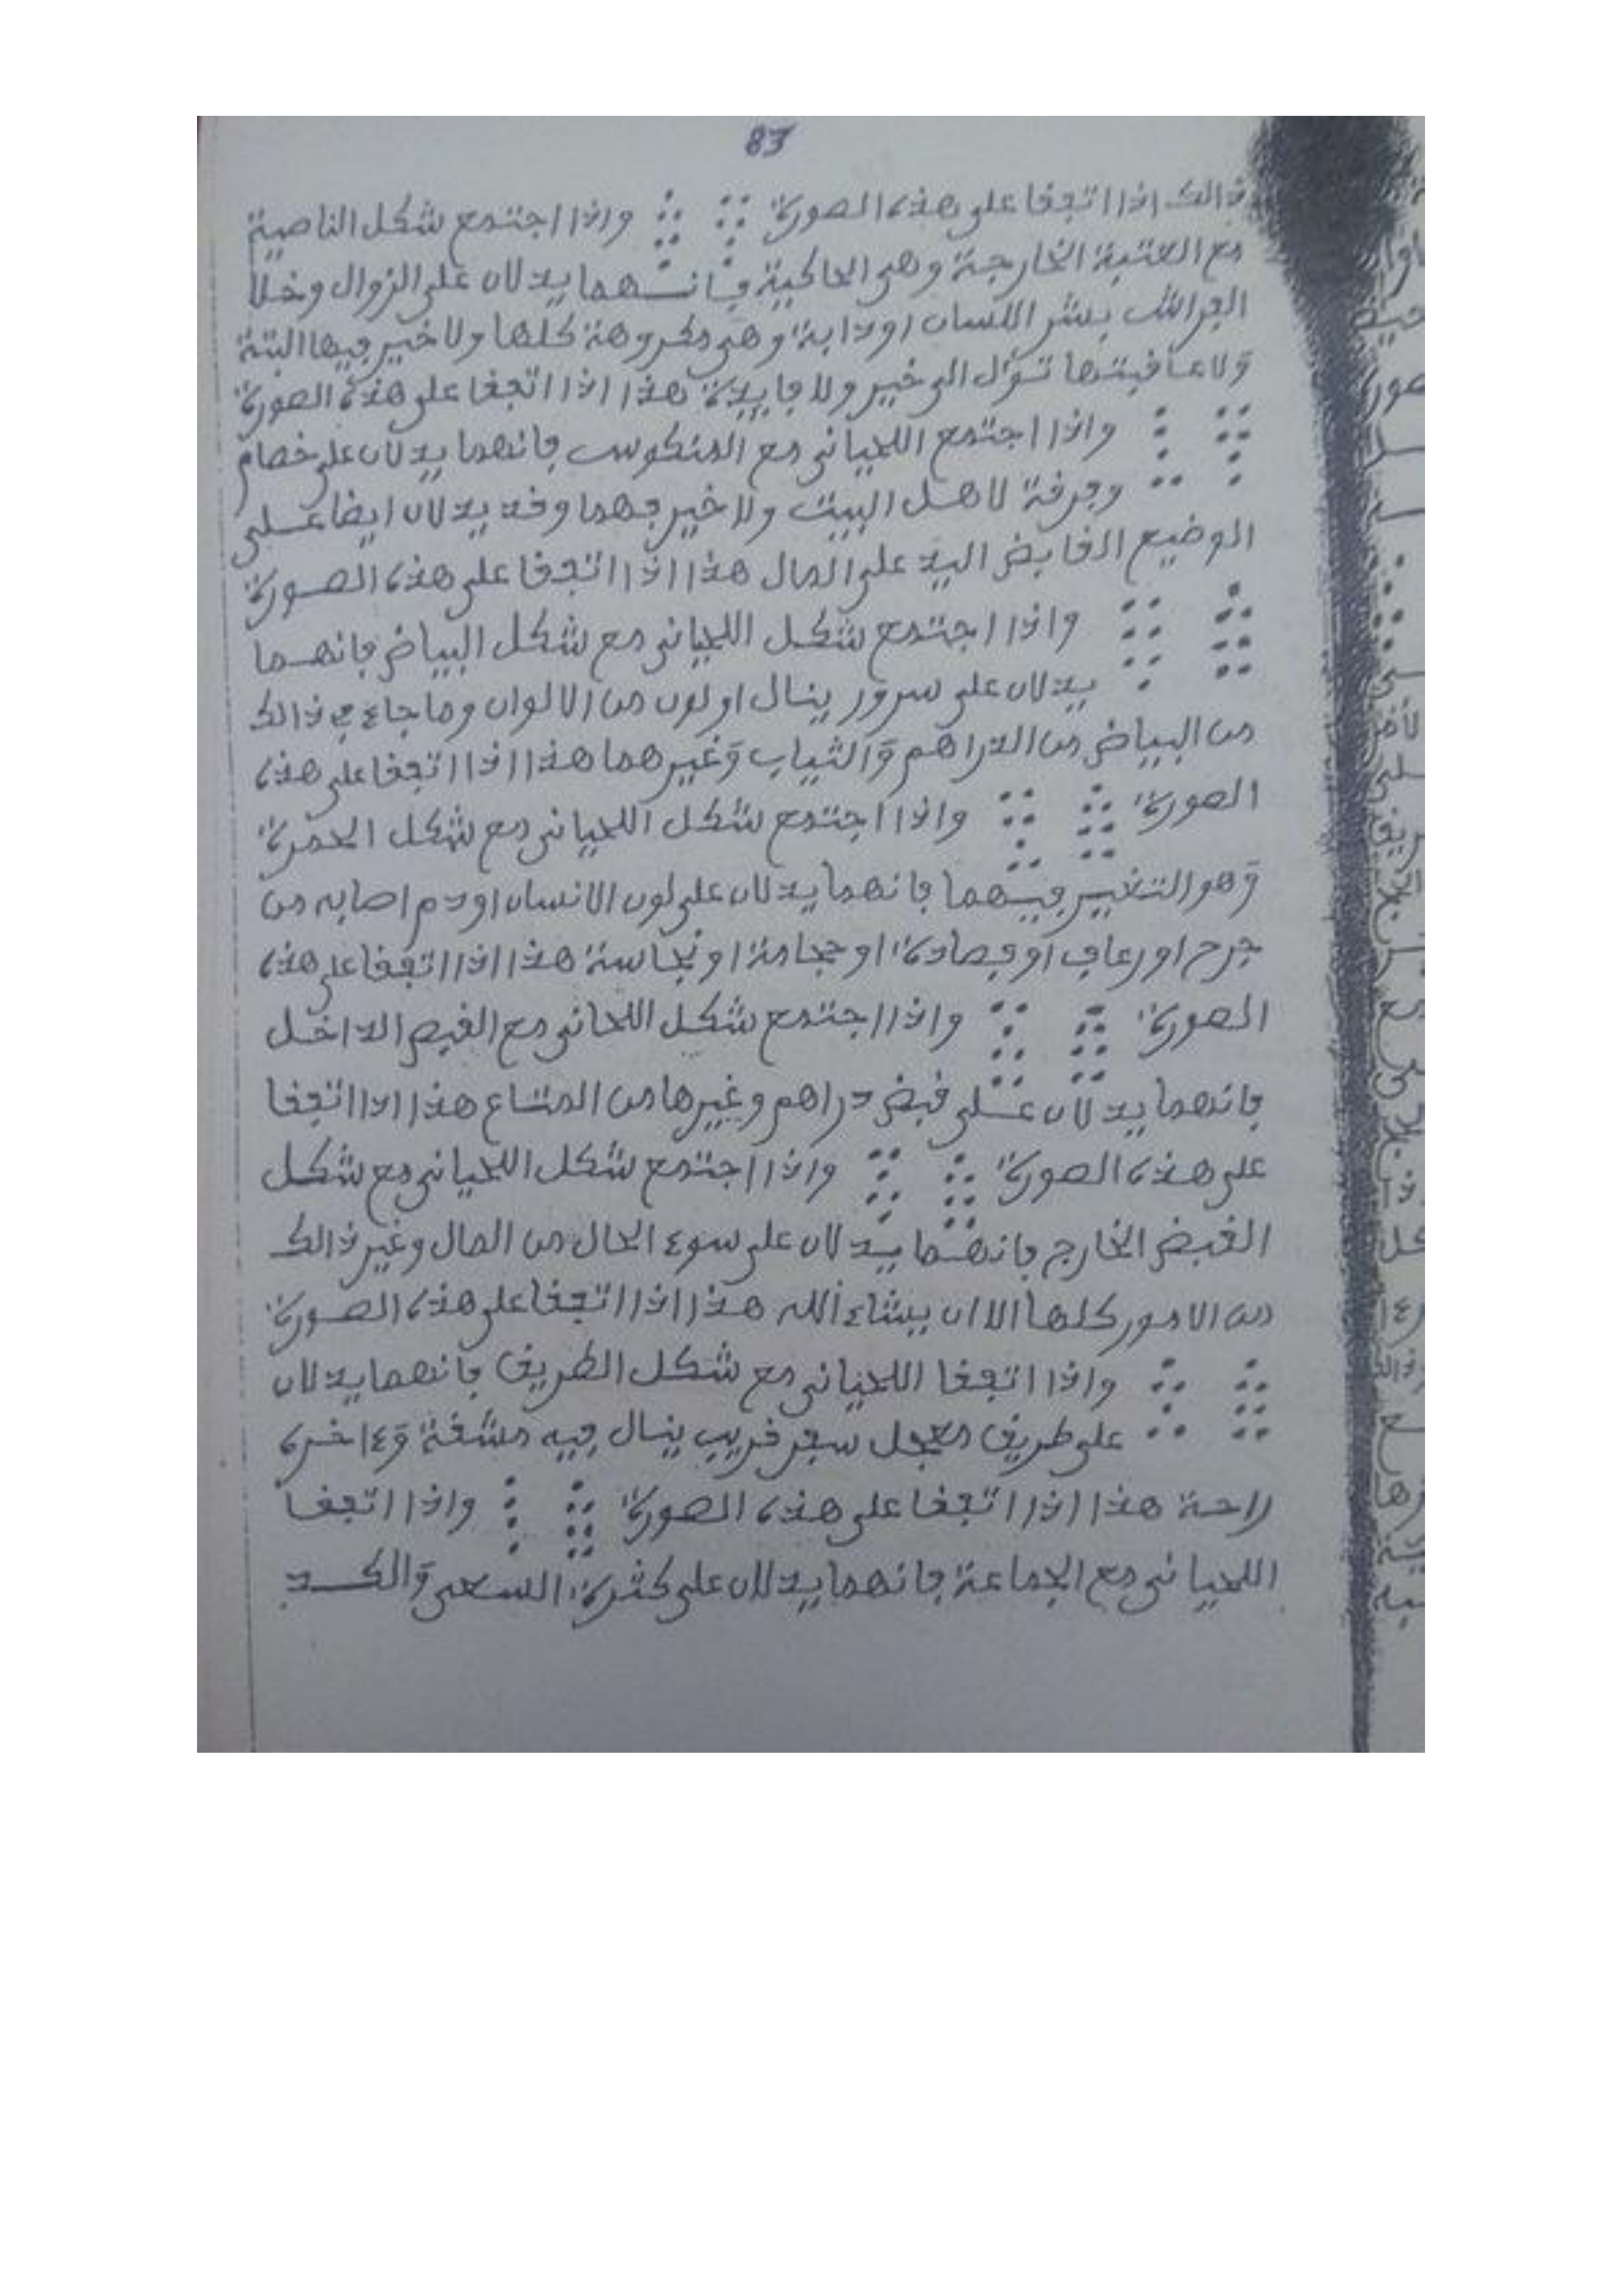 83
ذالك اذا اتفقا على هذه الصورة واذا اجتمع شكل الناصية
مع العتبة الخارجة وهي الحاكية فإنهما يدلان على الزوال وخلا
الفراش بشر اللسان او دابة وهي مكروهة كلها ولا خير فيها البتة
وَلا عاقبتها تؤل الى خير ولا فايدة هذا اذا اتفقا على هذه الصورة
واذا اجتمع اللحياني مع المنكوس فانهما يدلان على خصام
وفرقة لاهل البيت ولا خير فهما وقد يدلان ايضا على
الوضيع القابض اليد على المال هذا اذا اتفقا على هذه الصورة
واذا اجتمع شكل اللحياني مع شكل البياض فانهما
يدلان على سرور ينال او لون من الالوان وما جاء في ذالك
من البياض من الدراهم وَالثياب وَغيرهما هذا اذا اتفقا على هذه
الصورة واذا اجتمع شكل اللحياني مع شكل الحمرة
وَهو التغيير فيهما فانهما يدلان على لون الانسان او دم اصابه من
جرح او رعاف او فصادة او حجامة او نجاسة هذا اذا اتفقا على هذه
الصورة واذا اجتمع شكل اللحاني مع القبض الداخل
فانهما يدلان على قبض دراهم وغيرها من المتاع هذا اذا اتفقا
على هذه الصورة واذا اجتمع شكل اللحياني مع شكل
القبض الخارج فانهما يدلان على سوء الحال من المال وغير ذالك
من الامور كلها الا ان يشاء الله هذا اذا اتفقا على هذه الصورة
واذا اتفقا اللحياني مع شكل الطريق فانهما يدلان
على طريق معجل سفر قريب ينال فيه مشقة وَءاخره
راحة هذا اذا اتفقا على هذه الصورة واذا اتفقا
اللحياني مع الجماعة فانهما يدلان على كثرة السعي وَالكد